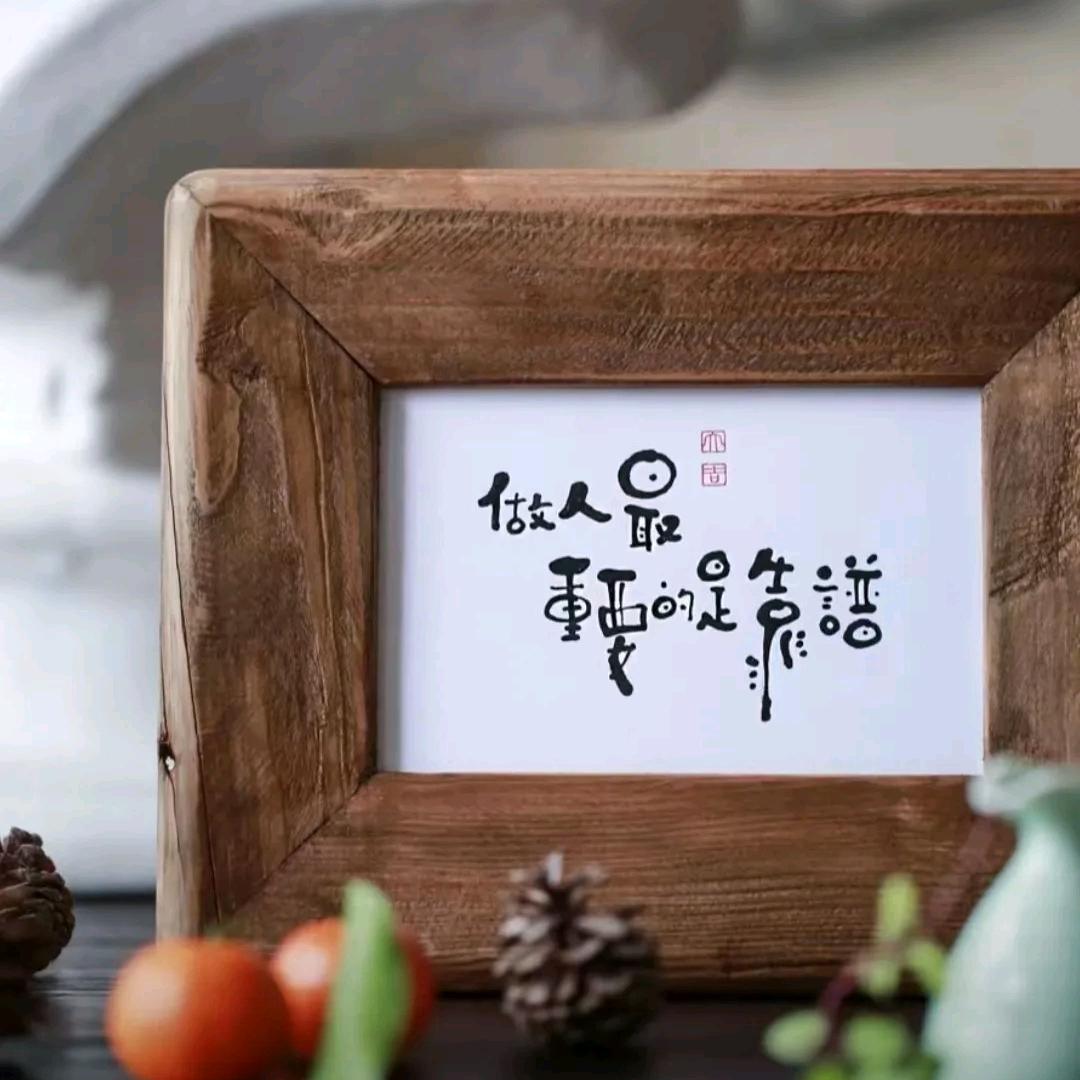 做人最
重要的是靠譜